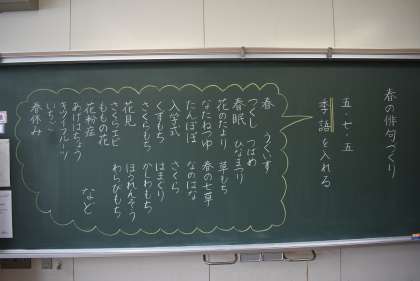 春の俳句づくり
五・七・五
季語を入れる
春　うぐいす
つくし　つばめ
春眠　ひなまつり
花のたより　草もち
なたねつゆ　春の七草
たんぽぽ　なのはな
入学式　さくら
くすもち　はまぐり
さくらもち　かしわもち
花見　ほうれんそう
さくらエビ　わらびもち
ももの花
花粉症　など
あげはちょう
キウイフルーツ
いちご
春休み